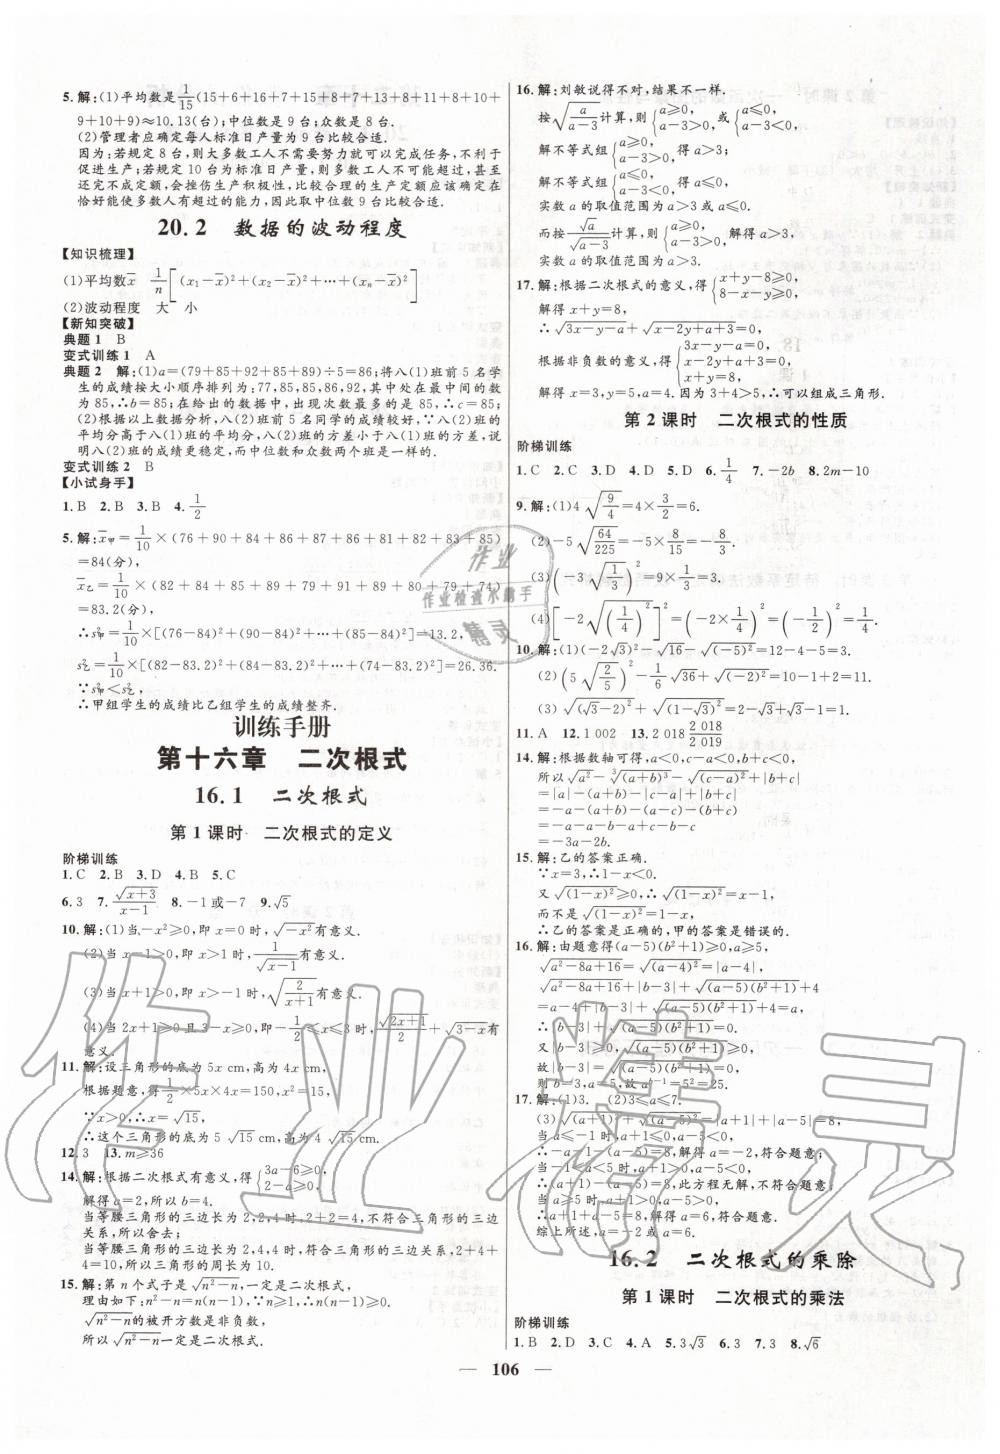 5. 解:(1)平均数是1/15(15+6+16+7+15+8+7+13+8+11+8+10+
9+10+9)≈10.13(台);中位数是9台;众数是8台.
(2)管理者应确定每人标准日产量为9台比较合适.
因为:若规定8台,则大多数工人不需要努力就可以完成任务,不利于
促进生产;若规定10台为标准日产量,则多数工人不可能超过,甚至
还完不成定额,会挫伤生产积极性,比较合理的生产定额应该确定在
恰好能使多数人有超过的能力,因此取中位数9台比较合适.
20.2 数据的波动程度
【知识梳理】
(1)平均数x̄ 1/n[(x₁-x̄)²+(x₂-x̄)²+…+(xₙ-x̄)²]
(2)波动程度 大 小
【新知突破】
典题1 B
变式训练1 A
典题2 解:(1)a=(79+85+92+85+89)÷5=86;将八(1)班前5名学
生的成绩按大小顺序排列为:77,85,85,86,92,其中处在最中间的数
为85,∴b=85;在给出的数据中,出现次数最多的是85,∴c=85;
(2)根据以上数据分析,八(2)班前5名同学的成绩较好,∵八(2)班的
平均分高于八(1)班的平均分,八(2)班的方差小于八(1)班的方差,说
明八(2)班的成绩更稳定,而中位数和众数两个班是一样的.
变式训练2 B
【小试身手】
1. B 2. B 3. B 4. 1/2
5. 解:x̄甲=1/10×(76+90+84+86+87+86+81+82+83+85)
=84(分),
x̄乙=1/10×(82+84+85+89+79+91+89+80+79+74)
=83.2(分),
∴s²甲=1/10×[(76-84)²+(90-84)²+…+(85-84)²]=13.2,
s²乙=1/10×[(82-83.2)²+(84-83.2)²+…+(74-83.2)²]=26.36.
∵s²甲<s²乙,
∴甲组学生的成绩比乙组学生的成绩整齐.
训练手册
第十六章 二次根式
16.1 二次根式
第1课时 二次根式的定义
阶梯训练
1. C 2. B 3. D 4. B 5. C
6. 3 7. √(x+3)/(x-1) 8. -1或-7 9. √5
10. 解:(1)当-x²≥0,即x=0时,√(-x²)有意义.
(2)当x-1>0,即x>1时,1/√(x-1)有意义.
(3)当x+1>0,即x>-1时,√(2/(x+1))有意义.
(4)当2x+1≥0且3-x≥0,即-1/2≤x≤3时,√(2x+1)/2+√(3-x)有
意义.
11. 解:设三角形的底为5x cm,高为4x cm,
根据题意,得1/2×5x×4x=150,x²=15,
∵x>0,∴x=√15,
∴这个三角形的底为5√15 cm,高为4√15 cm.
12. 3 13. m≥36
14. 解:根据二次根式有意义,得{3a-6≥0, 2-a≥0,
解得a=2,所以b=4.
当等腰三角形的三边长为2,2,4时,2+2=4,不符合三角形三边
关系,所以舍去;
当等腰三角形的三边长为2,4,4时,符合三角形三边关系,2+4+
4=10,所以三角形的周长为10.
15. 解:第n个式子是√(n²-n),一定是二次根式,
理由如下:n²-n=n(n-1),∵n≥1,∴n(n-1)≥0,
√(n²-n)的被开方数是非负数,
所以√(n²-n)一定是二次根式.
16. 解:刘敏说得不对,结果不一样.
按√(a/(a-3))计算,则{a≥0, a-3>0,或{a≤0, a-3<0,
解不等式组{a≥0, a-3>0,得a>3;
解不等式组{a≤0, a-3<0,得a≤0.
实数a的取值范围为a>3或a≤0.
而按√a/√(a-3)计算,则{a≥0, a-3>0,解得a>3,
实数a的取值范围为a>3.
17. 解:根据二次根式的意义,得{x+y-8≥0, 8-x-y≥0,
解得x+y=8,
∴√(3x-y-a)+√(x-2y+a+3)=0,
根据非负数的意义,得{3x-y-a=0, x-2y+a+3=0, x+y=8,
解得x=3,y=5,a=4.因为3+4>5,∴可以组成三角形.
第2课时 二次根式的性质
阶梯训练
1. C 2. C 3. D 4. D 5. D 6. 1/4 7. -2b 8. 2m-10
9. 解:(1)4√(9/4)=4×3/2=6.
(2)-5√(64/225)=-5×8/15=-8/3.
(3)(-3√(1/3))²=9×1/3=3.
(4)[-2√((1/4)²)]²=(-2×1/4)²=(-2/4)²=1/4.
10. 解:(1)(-2√3)²-√16-√(-5)²=12-4-5=3.
(2)(5√(2/5))²-1/6√36+√(-2)²=10-1+2=11.
(3)√(√3-2)²+√(1-√3)²=2-√3+√3-1=1.
11. A 12. 1 002 13. 2 018 2 018/2 019
14. 解:根据数轴可得,a<0,c-a<0,b+c<0,
所以√a²-³√(a+b)³-√(c-a)²+|b+c|
=|a|-(a+b)-|c-a|+|b+c|
=-a-(a+b)-(a-c)-(b+c)
=-a-a-b-a+c-b-c
=-3a-2b.
15. 解:乙的答案正确.
∵x=3,∴1-x<0.
又√(1-x)²≥0,∴√(1-x)²=x-1,
而不是√(1-x)²=1-x,
∴乙的答案是正确的,甲的答案是错误的.
16. 解:由题意得(a-5)(b²+1)≥0,a≥5,
√(a²-8a+16)=√(a-4)²=|a-4|,
√(a²-8a+16)+|b-3|+√(a-5)(b²+1)=a+4
=a-4+|b-3|+√(a-5)(b²+1)+4
∴|b-3|+√(a-5)(b²+1)=0.
又|b-3|≥0,√(a-5)(b²+1)≥0,
故|b-3|=√(a-5)(b²+1)=0,
则b=3,a=5,故a^(b-1)=5²=25.
17. (1)3. (2)3≤a≤7.
(3)√(a+1)²+√(a-5)²=|a+1|+|a-5|=8,
当a≤-1时,a+1≤0,a-5<0,
∴-a-1-a+5=8,解得a=-2,符合题意.
当-1<a<5时,a+1>0,a-5<0,
∴(a+1)-(a-5)=8,此方程无解,不符合题意;
当a≥5时,a+1>0,a-5>0,
∴a+1+a-5=8,解得a=6,符合题意.
综上所述,a=-2或a=6.
16.2 二次根式的乘除
第1课时 二次根式的乘法
阶梯训练
1. B 2. D 3. C 4. A 5. 3√3 6. 3 7. 3 8. √6
106